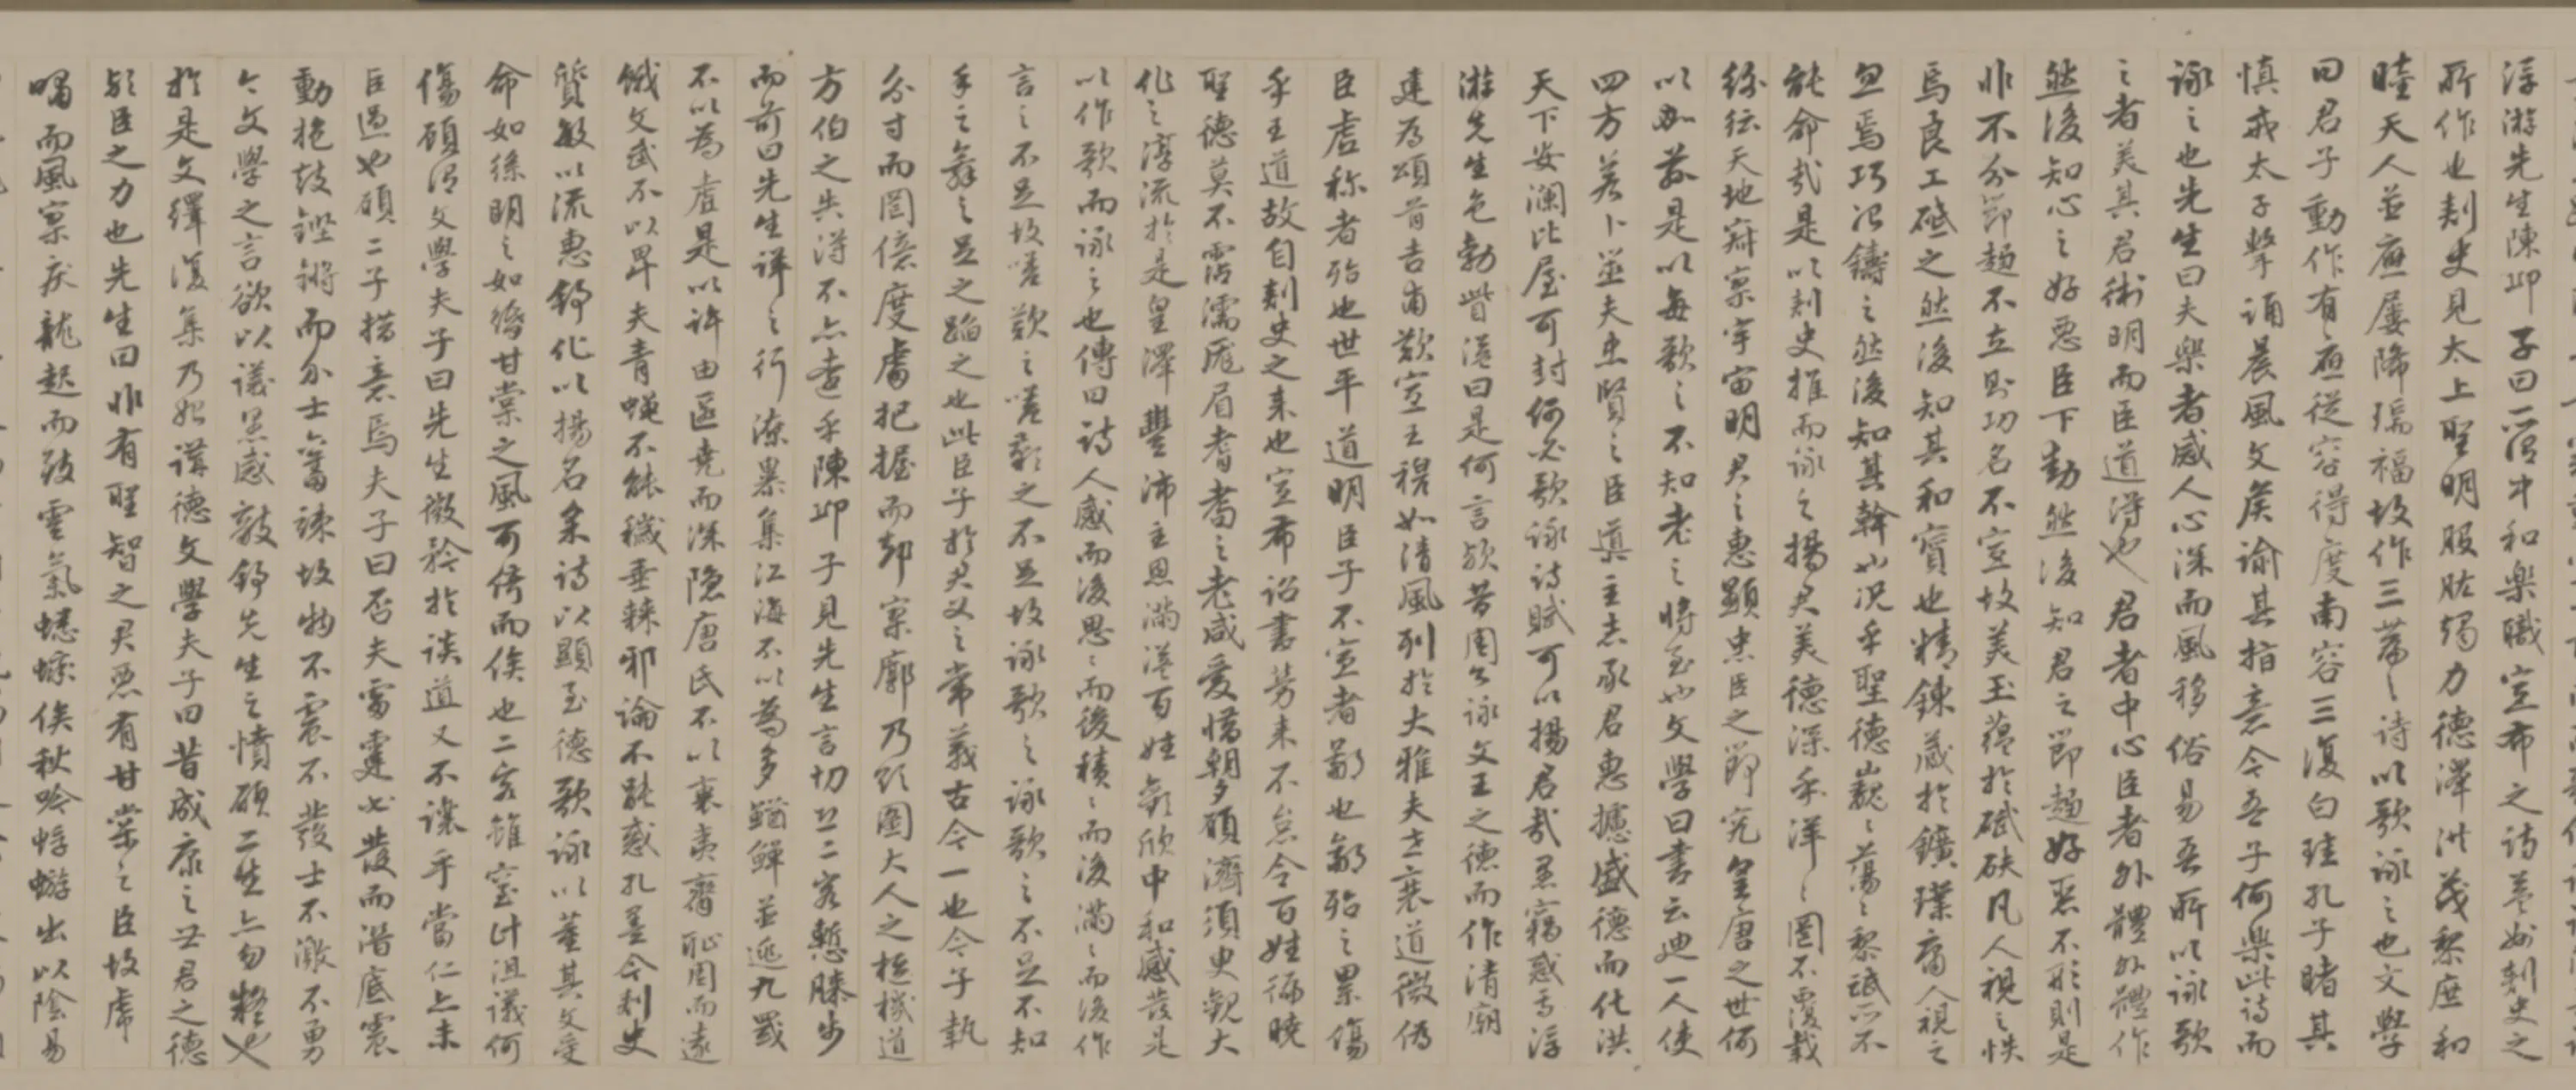 浮游先生陳邱子曰所謂中和樂職宣布之詩益州刺史之
所作也刺史見太上聖明股肱竭力德澤洪茂黎庶和
睦天人並應屢降瑞福故作三篇之詩以歌詠之也文學
曰君子動作有應從容得度南容三復白珪孔子睹其
慎戒太子擊誦晨風文侯諭其指意今吾子何樂此詩而
詠之也先生曰夫樂者感人心深而風移俗易吾所以詠歌
之者美其君術明而臣道得也君者中心臣者外體外體作
然後知心之好惡臣下動然後知君之節趨好惡不形則是
非不分節趨不立則功名不宣故美玉蘊於碔砆凡人視之怢
焉良工砥之然後知其和寶也精鍊藏於鑛璞庸人視之
忽焉巧冶鑄之然後知其幹也況乎聖德巍巍蕩蕩黎氓所不
能命哉是以刺史推而詠之揚君美德深乎洋洋罔不覆載
紛紜天地寂寥宇宙明君之惠顯忠臣之節究皇唐之世何
以加茲是以每歌之不知老之將至也文學曰書云迪一人使
四方若卜筮夫忠賢之臣導主志承君惠攄盛德而化洪
天下安瀾比屋可封何必歌詠詩賦可以揚君哉愚竊惑焉浮
游先生色勃眥溢曰是何言歟昔周公詠文王之德而作清廟
建為頌首吉甫歎宣王穆如清風列於大雅夫世衰道微偽
臣虛稱者殆也世平道明臣子不宣者鄙也鄙殆之累傷
乎王道故自刺史之來也宣布詔書勞來不怠令百姓徧曉
聖德莫不霑濡厖眉耆耇之老咸愛惜朝夕願濟須臾觀大
化之淳流於是皇澤豐沛主恩滿溢百姓歡欣中和感發是
以作歌而詠之也傳曰詩人感而後思思而後積積而後滿滿而後作
言之不足故嗟歎之嗟歎之不足故詠歌之詠歌之不足不知
手之舞之足之蹈之也此臣子於君父之常義古今一也今子執
分寸而罔億度處把握而卻寥廓乃欲圖大人之樞機道
方伯之失得不亦遠乎陳邱子見先生言切恐二客慙膝步
而前曰先生詳之行潦暴集江海不以為多鰌鱓並逃九罭
不以為虛是以許由匿堯而深隱唐氏不以衰夷齊恥周而遠
餓文武不以卑夫青蠅不能穢垂棘邪論不能惑孔墨今刺史
質敏以流惠舒化以揚名采詩以顯至德歌詠以董其文受
命如絲明之如緡甘棠之風可倚而俟也二客雖窒計沮議何
傷顧謂文學夫子曰先生微矜於談道又不讓乎當仁亦未
巨過也願二子措意焉夫子曰否夫雷霆必發而潛底震
動枹鼓鏗鏘而介士奮竦故物不震不發士不激不勇
今文學之言欲以議愚感敵舒先生之憤願二生亦勿疑也
於是文繹復集乃始講德文學夫子曰昔成康之世君之德
歟臣之力也先生曰非有聖智之君惡有甘棠之臣故虎
嘯而風寥戾龍起而致雲氣蟋蟀俟秋吟蜉蝣出以陰易